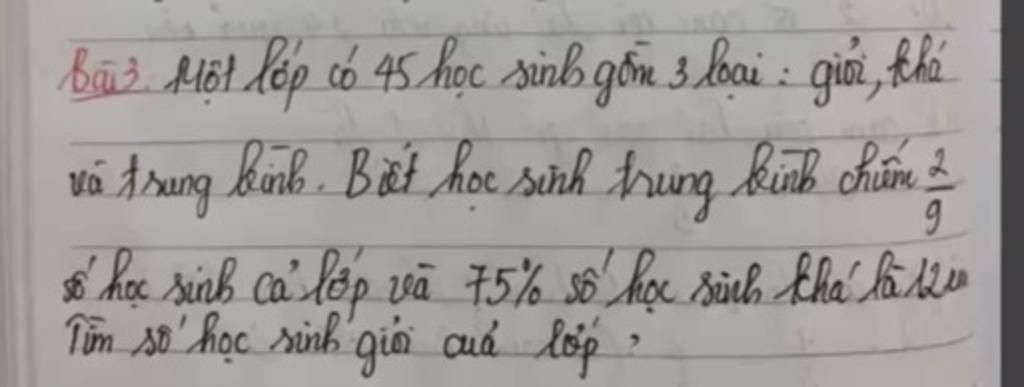 Bài 3. Một lớp có 45 học sinh gồm 3 loại : giỏi, khá
và trung bình. Biết học sinh trung bình chiếm 2/9
số học sinh cả lớp và 75% số học sinh khá là 12 em
Tìm số học sinh giỏi cuả lớp ?